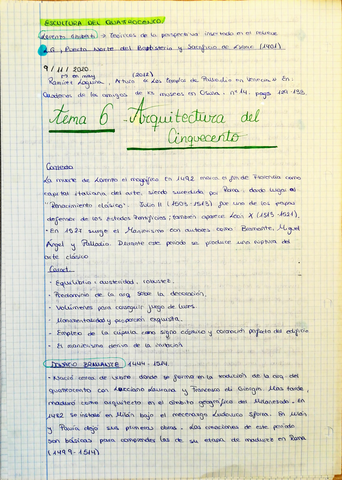 ESCULTURA DEL QUATROCENTO
Lorenzo Ghiberti → Técnicas de la perspectiva insertado en el relieve
Ej, Puerta Norte del Baptisterio y Sacrificio de Isaac (1401).
9 / 11 / 2020
(2012)
Ramírez Laguna, Arturo de Los Templos de Palladio en Venecia. En:
Cuadernos de los amigos de los museos en Osuna. nº 14, pags 129-133.
tema 6 - Arquitectura del
Cinquecento
Contexto
- La muerte de Lorenzo el magnífico en 1492 marca el fin de Florencia como
capital italiana del arte, siendo sucedida por Roma, dando lugar al
"Renacimiento clásico". Julio II (1503-1513) fue uno de los papas
defensor de los Estados Pontificios; también aparece León X (1513-1521).
- En 1527 surge el Manierismo con autores como Bramante, Miguel
Ángel y Palladio. Durante este periodo se produce una ruptura del
arte clásico
Caract.
- Equilibrio: austeridad, robustez.
- Predominio de la arq. sobre la decoración.
- Volúmenes para conseguir juego de luces.
- Monumentalidad y proporción exquisita.
- Empleo de la cúpula como signo cósmico y coronación perfecta del edificio
- El manierismo deriva de la imitación
DONATO BRAMANTE 1444 - 1514.
- Nació cerca de Urbino, donde se forma en la tradición de la arq. del
quattrocento con Luciano Laurana y Francesco di Giorgio. Más tarde
maduró como arquitecto en el ámbito geográfico del Milanesado. En
1482 se instaló en Milán bajo el mecenazgo Ludovico Sforza. En Milán
y Pavía dejó sus primeras obras. Las creaciones de este periodo
son básicas para comprender las de su etapa de madurez en Roma
(1499-1514)